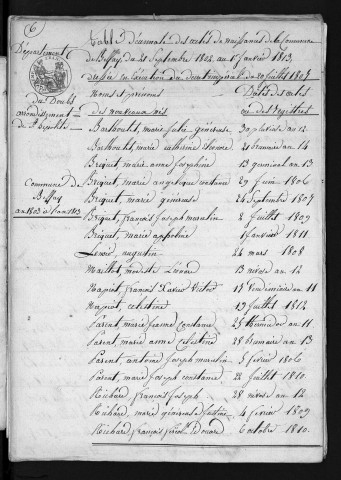 (6)
Département
du Doubs
arrondissement
de St. hypolite
Commune de
Bessay
an 1803 à l'an 1813
Table décennale des actes de naissances de la Commune
de Bessay, du 21 Septembre 1802 au 1er Janvier 1813,
dressée en Exécution du décret impérial du 20 Juillet 1807
Noms et prénoms Dates des actes
des nouveaux nés ou des Registres
Barthoulet, marie généreuse 30 prairial an 12
Barthoulet, marie catherine 21 brumaire an 14
Briquet, marie anne Josephine 13 germinal an 13
Briquet, marie angelique constance 29 Juin 1806
Briquet, marie généreuse 26 Septembre 1807
Briquet, françois Joseph 8 Juillet 1809
Briquet, marie apoline 1 Janvier 1811
augustin 26 mars 1808
Maillot, modeste 13 nivose an 12
françois Xavier Victor 15 Vendémiaire an 11
celestine 19 Juillet 1812
Parent, marie Constance 25 thermidor an 11
Parent, marie anne celestine 28 brumaire an 13
Parent, antoine Joseph 5 fevrier 1806
Parent, marie Joseph constance 22 Juillet 1810
Richard, françois Joseph 28 nivose an 12
Richard, marie généreuse 4 fevrier 1809
Richard, françois 6 octobre 1810